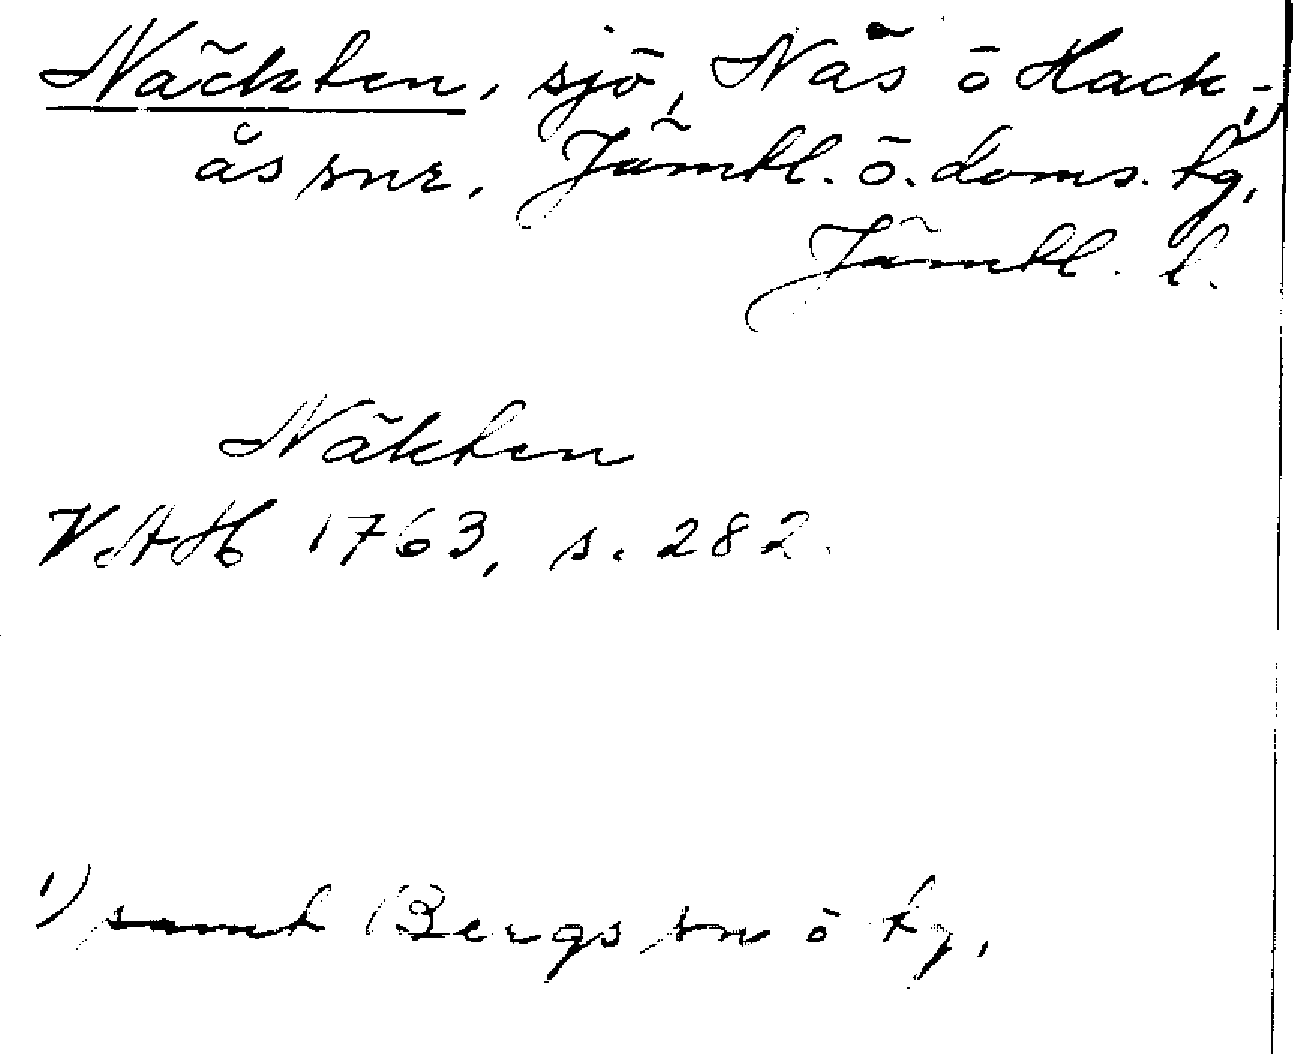 Näckten, sjö, Näs o Hack-
ås snr, Jämtl. ö. doms. tg,¹)
Jämtl. l.
Näkten
VAH 1763, s. 282.
¹) samt Bergs sn o tg,